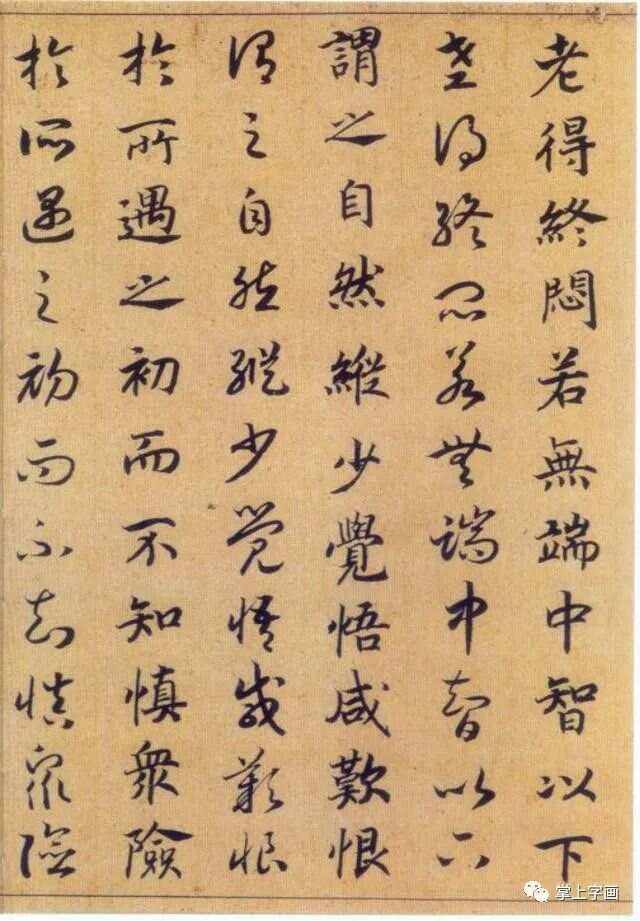 老得終悶若無端中智以下
老得終悶若無端中智以下
謂之自然縱少覺悟咸歎恨
謂之自然縱少覺悟咸歎恨
於所遇之初而不知慎衆險
於所遇之初而不知慎衆險
掌上字画